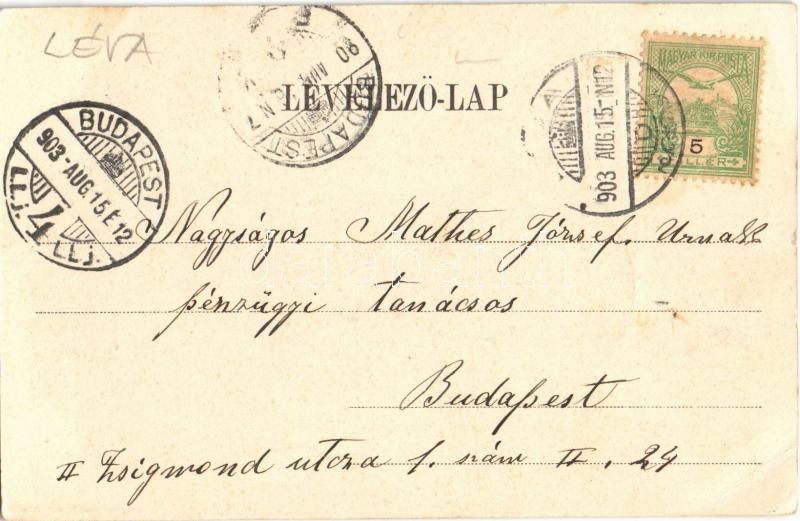 LÉVA
LEVELEZŐ-LAP
MAGYAR KIR. POSTA
5
FILLÉR
903 AUG. 15 N12
BUDAPEST
BUDAPEST
903-AUG.15.É.12
4
I.L.J. I.L.J.
Nagyságos Mathes József. Urnak
pénzügyi tanácsos
Budapest
II Zsigmond utcza 1. szám II. 24